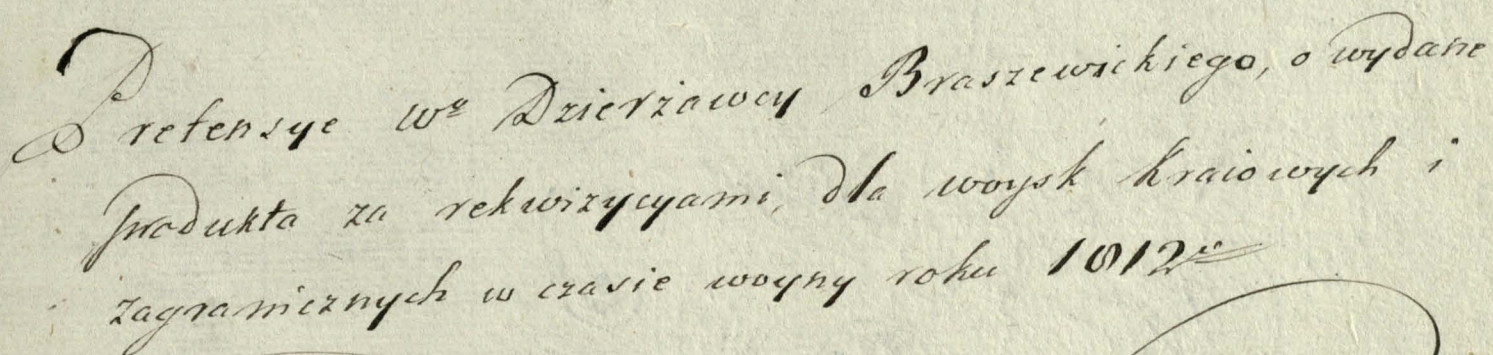 Pretensye Wo Dzierżawcy Braszewickiego, o wydane
produkta za rekwizycyami, dla woysk kraiowych i
zagranicznych w czasie woyny roku 1812go